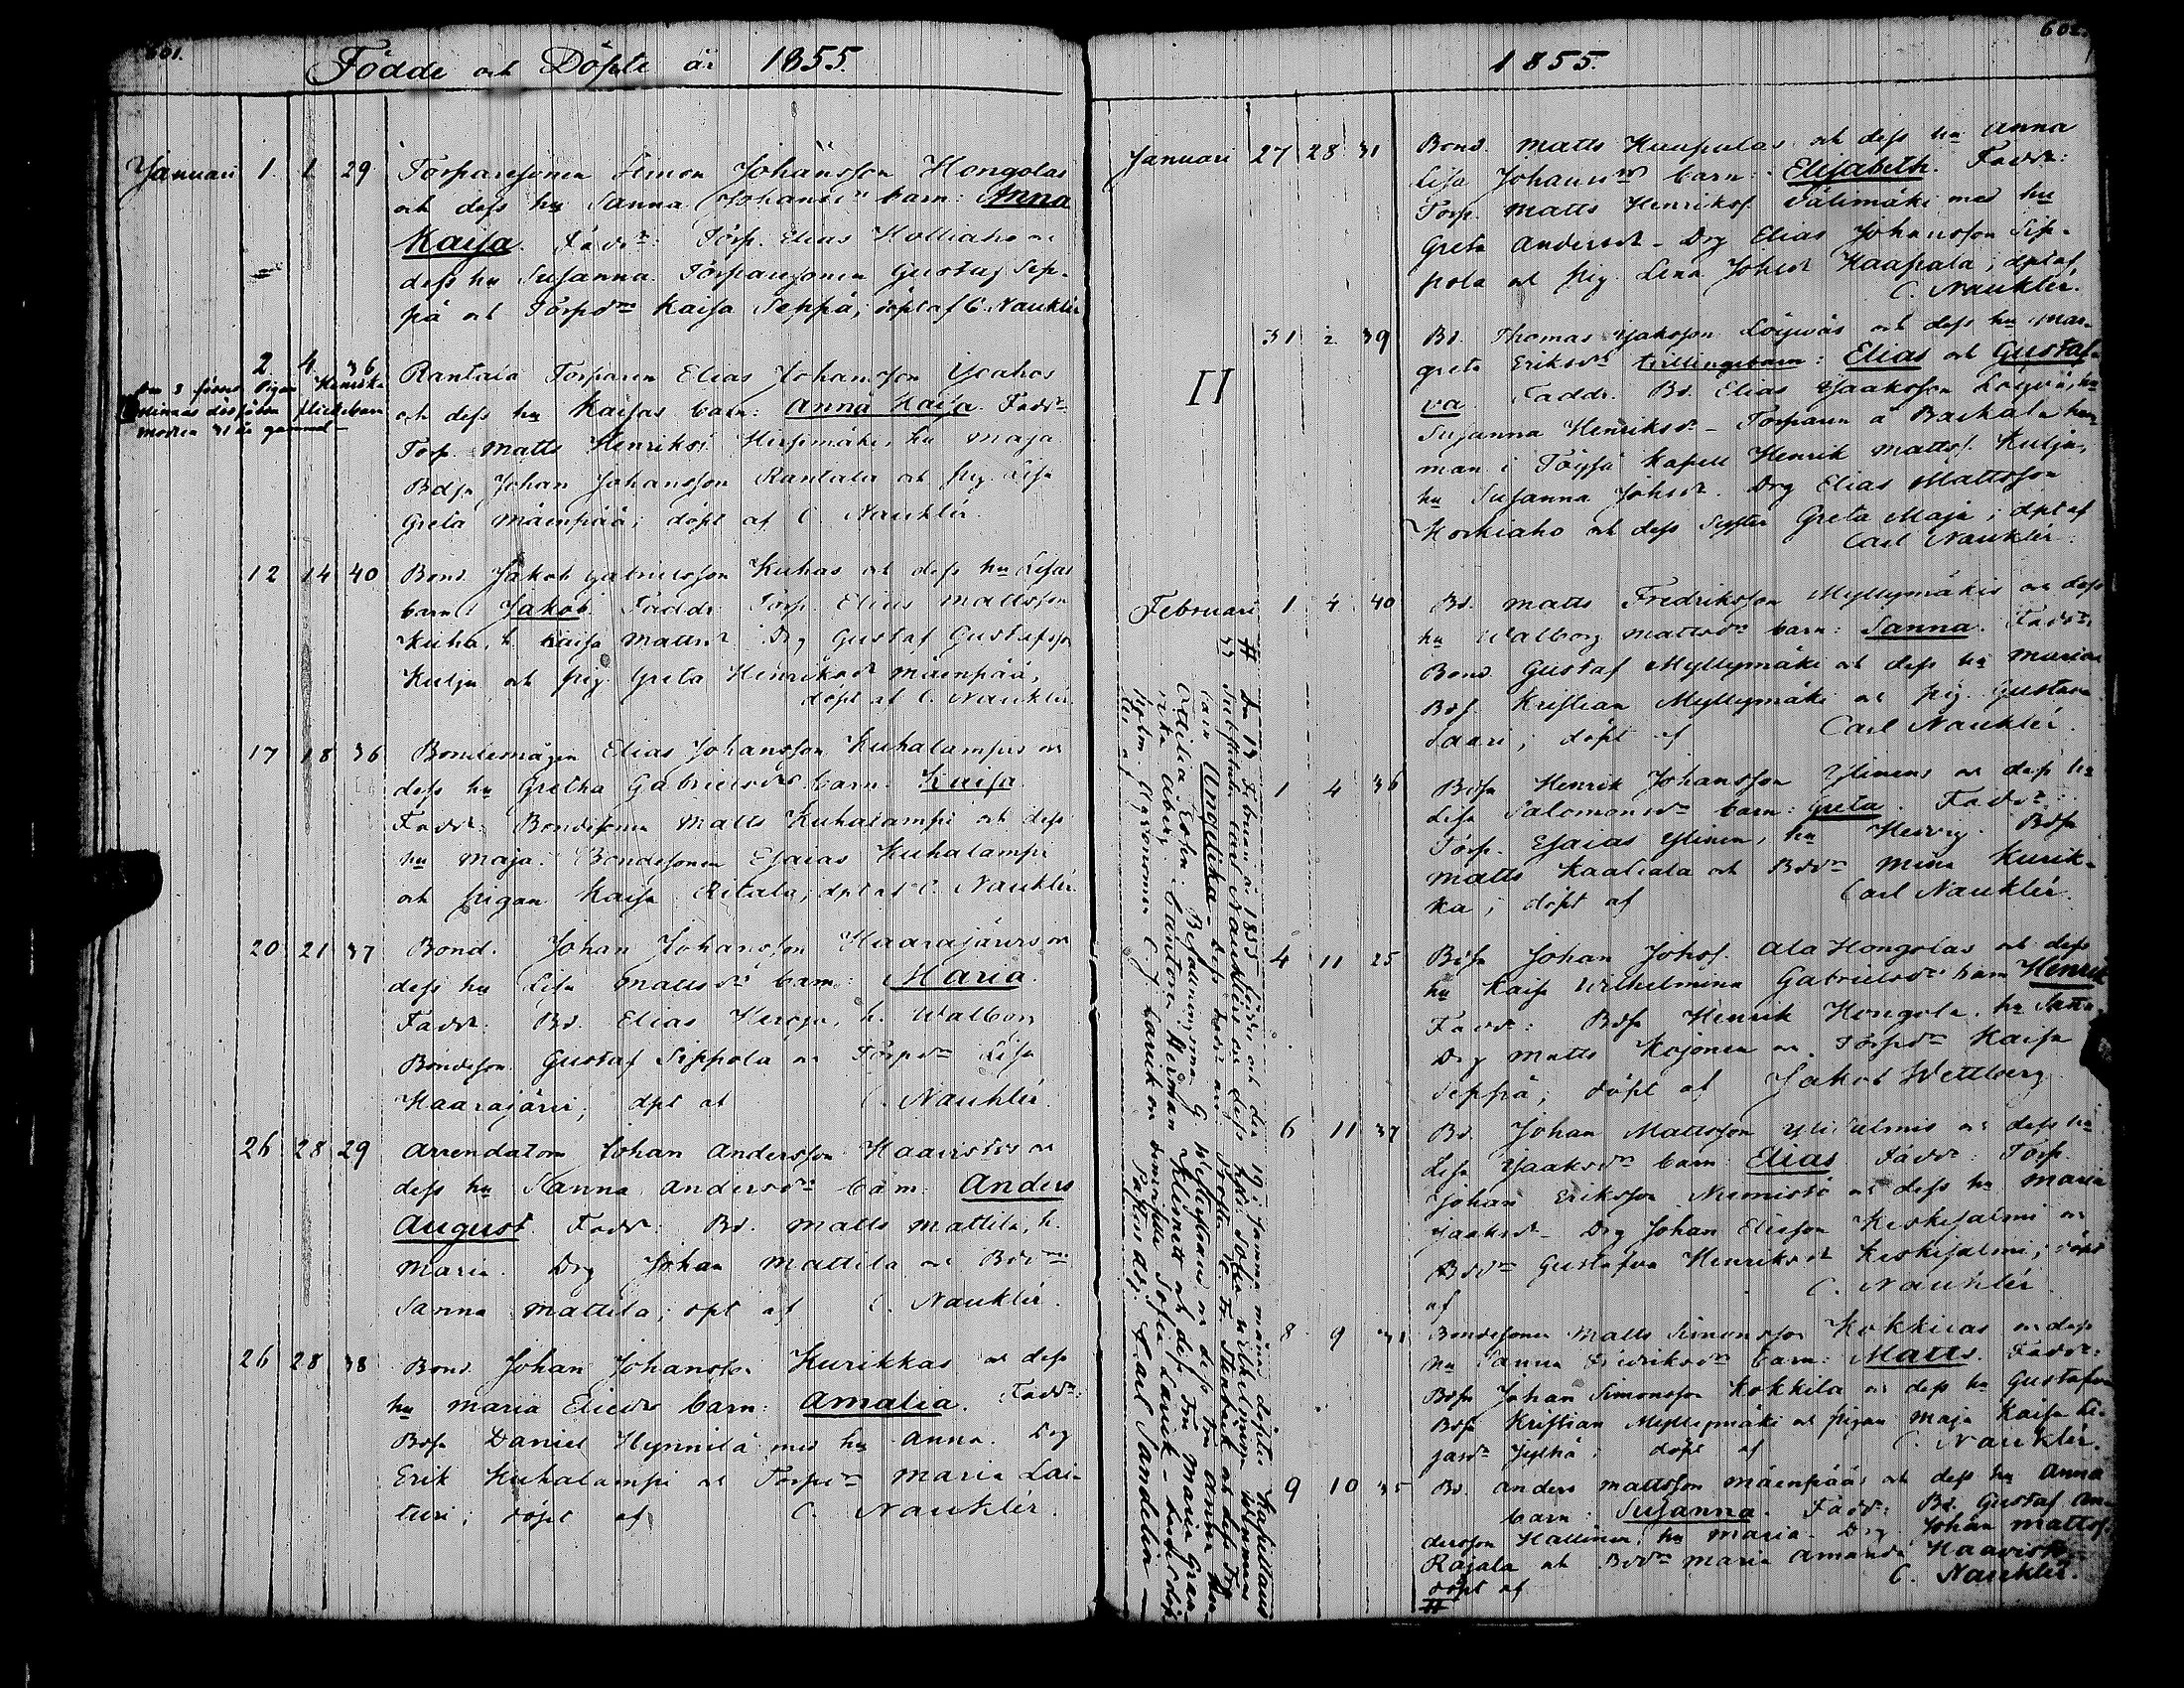 601.
Födde och Döpte år 1855.
Januari 1. 1 29 Torparesonen Simon Johansson Hongolas
och dess hu Sanna Johansdr barn: Anna
Kaisa. Faddr: Torp. Elias Holliaho och
dess hu Susanna. Torparesonen Gustaf Sep-
pä och Torpdr Kaisa Seppä; döpt af C. Nauklér
2. 4. 36 Rantala Torparen Elias Johansson Ycahos
och dess hu Kaisas barn: Anna Kaisa. Faddr:
Torp. Matts Henrikss. Hirsimäki, hu Maja
Bdsn Johan Johansson Rantala och pig. Lisa
Greta Mäenpää; döpt af C. Nauklér.
Den 3 föddes Pigan Henrika
dödfödda flickebarn
modren 31 år gammal
12 14 40 Bond. Jakob Gabrielsson Kuhas och dess hu Lisas
barn: Jakob. Faddr: Torp. Elias Mattsson
Kuha, h. Kaisa Mattsdr. Drg Gustaf Gustafsson
Kulju och pig. Greta Henriksdr Mäenpää,
döpt af C. Nauklér.
17 18 36 Bondemågen Elias Johansson Kuhalampis och
dess hu Gretha Gabrielsdrs barn. Kaisa.
Faddr: Bondesonen Matts Kuhalampi och dess
hu Maja. Bondesonen Esaias Kuhalampi
och pigan Kaisa Ritala; dpt af C. Nauklér.
20 21 37 Bond. Johan Johansson Haarajärvis och
dess hu Lisa Mattsdrs barn: Maria.
Faddr: Bd. Elias Heroja, h. Walborg
Bondeson Gustaf Seppola och Torpdr Lisa
Haarajärvi; dpt af C. Nauklér.
26 28 29 Arrendatorn Johan Andersson Haavistos och
dess hu Sanna Andersdrs barn. Anders
August. Faddr: Bd. Matts Mattila, h.
Maria. Drg Johan Mattila och Bddr
Sanna Mattila; dpt af C. Nauklér.
26 28 38 Bond. Johan Johansson Kurikkas och dess
hu Maria Eliedrs barn: Amalia. Faddr:
Bdsn Daniel Hynnilä med hu Anna. Drg
Erik Kuhalampi och Torpdr Maria Lai-
turi; döpt af C. Nauklér.
602.
1855.
Januari 27 28 31 Bond. Matts Haapalas och dess hu Anna
Lisa Johansdrs barn: Elisabeth. Faddr:
Torp. Matts Henrikss. Välimäki med hu
Greta Andersdr - Drg Elias Johansson Sep-
pola och pig. Lena Johsdr Haapala; dpt af
C. Nauklér.
II
31 2 39 Bd. Thomas Jaksson Löyväs och dess hu Mar-
greta Eriksdrs tvillingebarn: Elias och Gustaf-
va. Faddr. Bd. Elias Jaaksson Löyvä, hu
Susanna Henriksdr - Torparen å
man i Töysä Kapell Henrik Mattss. Kulju,
hu Susanna Johsdr. Drg Elias Mattsson
Koskiaho och dess syster Greta Maja; dpt af
Carl Nauklér.
Februari 1 4 40 Bd. Matts Fredriksson Myllymäkis och dess
hu Walborg Mattsdrs barn: Sanna. Faddr:
Bond. Gustaf Myllymäki och dess hu Maria
Bds. Kristian Myllymäki och pig. Gustava
Saari; döpt af Carl Nauklér.
1 4 36 Bdsn Henrik Johansson Ylinens och dess hu
Lisa Salomonsdrs barn: Greta. Faddr:
Torp. Esaias Ylinen, hu Hedvig. Bdsn
Matts Kaaliala och Bddr Mina Kurik-
ka; döpt af Carl Nauklér.
4 11 25 Bdsn Johan Johss. Ala Hongolas och dess
hu Kaisa Wilhelmina Gabrielsdrs barn Henrik
Faddr: Bdsn Henrik Hongola, hu
Drg Matts Kojonen och Torpdr Kaisa
Seppä; döpt af Jakob Wettberg
6 11 37 Bd. Johan Mattsson Ylisalmis och dess hu
Lisa Jaaksdrs barn Elias. Faddr: Torp.
Johan Eriksson Niemistö och dess hu Maria
Jaaksdr - Drg Johan Eliesson Keskisalmi och
Bddr Gustafva Henriksdr Keskisalmi; döpt
af C. Nauklér
8 9 31 Bondesonen Matts Simonsson Kokkilas och dess
hu Sanna Fredriksdrs barn: Matts. Faddr:
Bdsn Johan Simonsson Kokkila och dess hu Gustafva
Bdsn Kristian Myllymäki och pigan Maja Kaisa
Jylhä; döpt af C. Nauklér.
9 10 35 Bd. Anders Mattsson Mäenpääs och dess hu Anna
barn: Susanna. Faddr: Bd. Gustaf An-
dersson Hallinen, hu Maria - Drg Johan Mattss.
Rajala och Bddr Maria Amanda Haavisto
döpt af C. Nauklér.
#
# Den 13 Februari år 1855 föddes och den 19 i samma månad döptes Kapellans
Substituten Carl Nauklérs och dess hfru Sofia Wilhelmina
barn Angelika - dess faddrar: Prosten C. F. Stenbäck och dess fru
Ottilia - Befallningsman G. Westerstråhle och dess fru Anna
Åberg, Cantorn Herman Klemett och dess fru Maria
Agronomen C. J. Lauck och demoiselle Sofia Lauck - hvilket döptes
af Carl Sandelin -